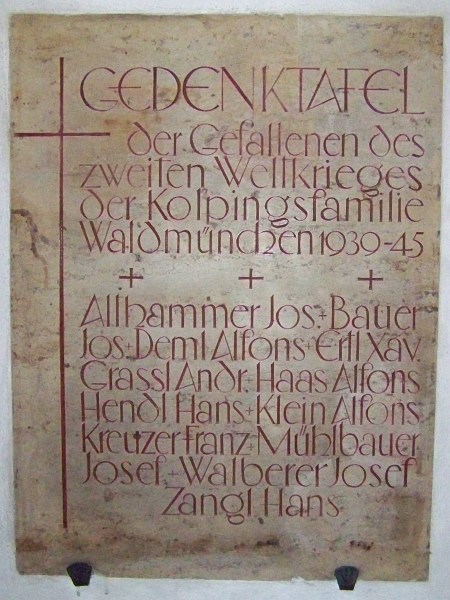 GEDENKTAFEL
der Gefallenen des
zweiten Weltkrieges
der Kolpingsfamilie
Waldmünchen 1939-45
+ + +
Allhammer Jos.+Bauer
Jos+Deml Alfons+Ertl Xav.
Grassl Andr.+Haas Alfons
Hendl Hans+Klein Alfons
Kreuzer Franz+Mühlbauer
Josef+Walberer Josef
Zangl Hans